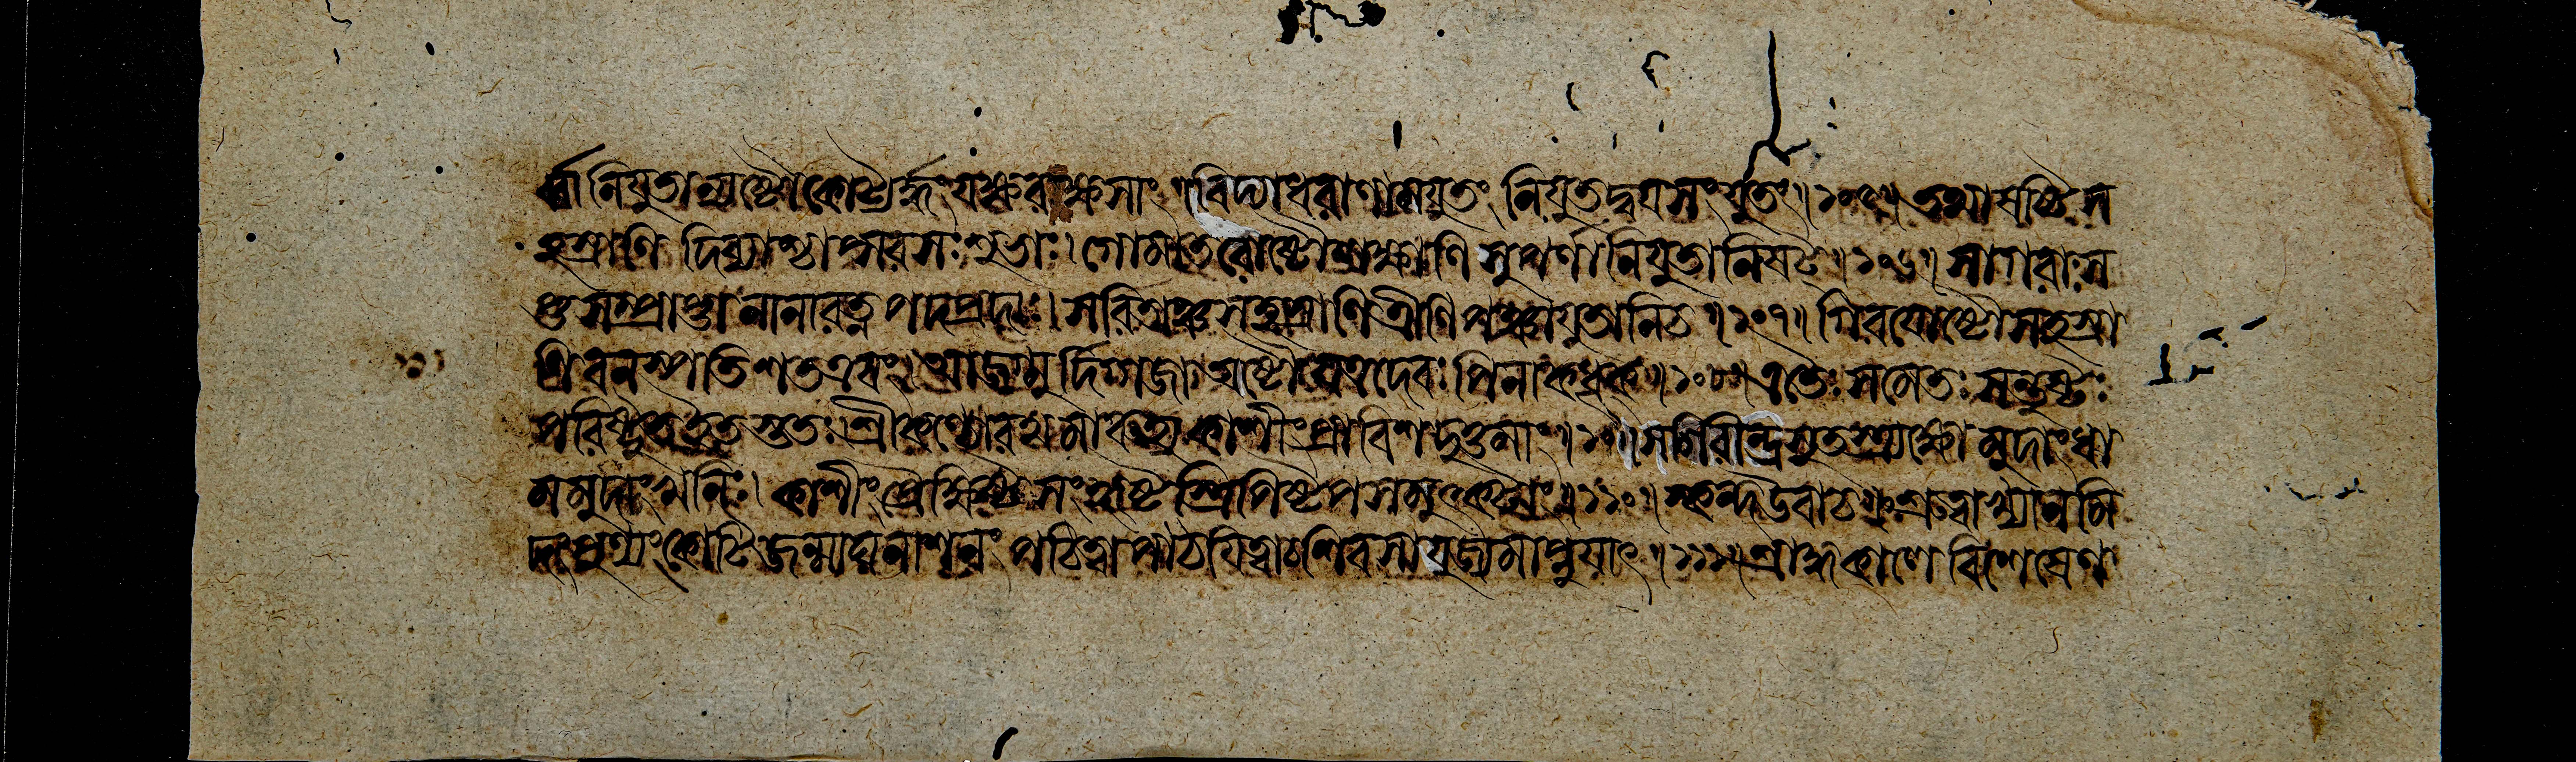 র্ব্বা নিযুতান্যষ্টৌ কোট্যর্দ্ধং যক্ষরক্ষসাং । বিদ্যাধরাণামযুতং নিযুতদ্বয়সংযুতং ॥ ১০৫ ॥ তথা ষষ্টিস
হস্রাণি দিব্যাশ্চাপ্সরসঃ শুভাঃ । গোমাতরোষ্টৌ লক্ষাণি সুপর্ণা নিযুতানি ষট্ ॥ ১০৬ ॥ সাগরাঃ স
প্ত সম্প্রাপ্তা নানারত্নপদপ্রদাঃ । সরিতাঞ্চ সহস্রাণি ত্রীণি পঞ্চাযুতানি চ ॥ ১০৭ ॥ গিরযোষ্টৌ সহস্রা
ণি বনস্পতিশতত্রযং । আজগ্মুর্দিগ্গজা অষ্টৌ যত্র দেবঃ পিনাকধৃক্ ॥ ১০৮ ॥ এতৈঃ সমেতঃ সন্তুষ্টঃ
পরিষ্টুত ইতস্ততঃ । শ্রীকণ্ঠো রথমারুহ্য কাশীং প্রাবিশদুত্তমাং ॥ ১০৯ ॥ স গিরীন্দ্রসুতস্ত্র্যক্ষো মুদাং ধা
মমুদাং খনিং । কাশীং প্রৈক্ষিষ্ট সংহৃষ্টস্ত্রিপিষ্টপসমুৎকটাং ॥ ১১০ ॥ স্কন্দ উবাচ ॥ শ্রুত্বাখ্যানমি
দং পুণ্যং কোটিজন্মাঘনাশনং পঠিত্বা পাঠযিত্বা চ শিবসাযুজ্যমাপ্নুযাৎ ॥ ১১১ ॥ শ্রাদ্ধকালে বিশেষেণ